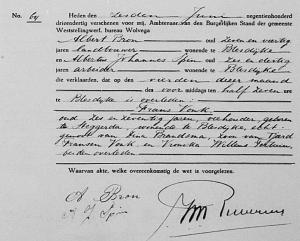 No. 64 Heden den zesden Juni negentienhonderd
drieendertig verschenen voor mij, Ambtenaar van den Burgerlijken Stand der gemeente
Weststellingwerf, bureau Wolvega
Albert Bron oud zeven en veertig
jaren, landbouwer wonende te Blesdijke
en Albertus Johannes Spin oud zes en
dertig jaren, arbeider wonende te Blesdijke
die verklaarden, dat op den vierden dezer maand
des voor middags ten half zeven ure
te Blesdijke is overleden:
Frans Vonk
oud zes en zeventig jaren, veehouder, geboren
te Steggerda, wonende te Blesdijke, echt-
genoot van Brandsma, zoon van Tjeerd
Fransen Vonk en Vrouwkje Willems
beiden overleden
Waarvan akte, welke overeenkomstig de wet is voorgelezen.
A Bron
A J Spin